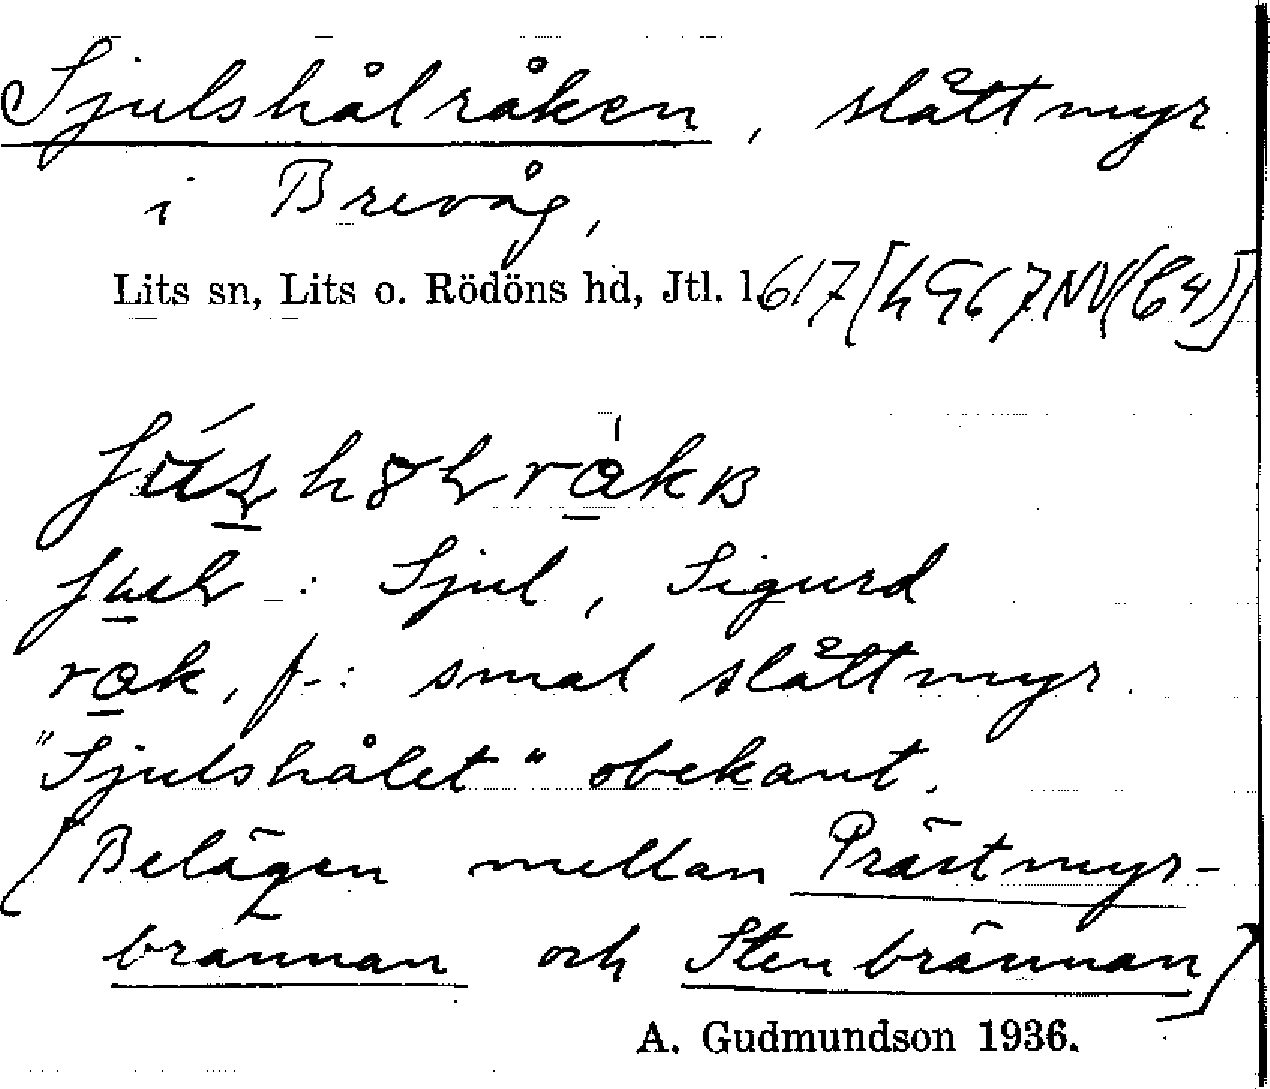 Sjulshålråken, slåttmyr
i Brevåg,
Lits sn, Lits o. Rödöns hd, Jtl. l. 617 [49G67NV(64)]
: Sjul, Sigurd
rak, f.: smal slåttmyr.
"Sjulshålet" obekant.
[Belägen mellan Prästmyr-
brännan och Stenbrännan]
A. Gudmundson 1936.